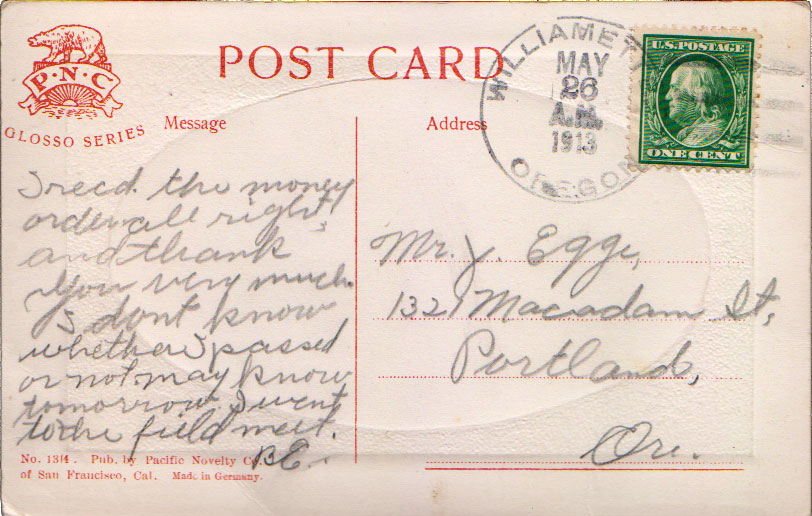 POST CARD
P.N.C
GLOSSO SERIES
Message
Address
WILLIAMETT
MAY
26
A.M.
1913
OREGON
U.S. POSTAGE
ONE CENT
I recd. the money
order all right,
and thank
you very much.
I dont know
whether I passed
or not, may know
tomorrow. I went
to the field meet.
B.E.
Mr. J. Egge,
1321 Macadam St,
Portland,
Ore.
No. 1314. Pub. by Pacific Novelty Co.
of San Francisco, Cal. Made in Germany.